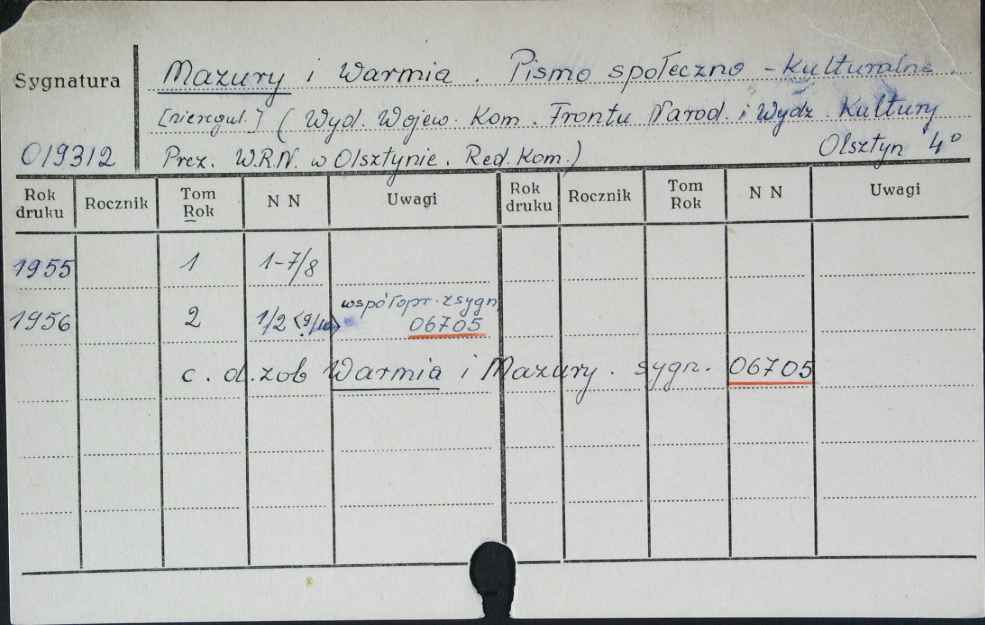 Sygnatura
Mazury i Warmia. Pismo społeczno-kulturalne.
[nieregul.] (Wyd. Wojew. Kom. Frontu Narod. i Wydz. Kultury
019312 Prez. W.R.N. w Olsztynie. Red. Kom.) Olsztyn 4°
Rok druku Rocznik Tom Rok N N Uwagi Rok druku Rocznik Tom Rok N N Uwagi
1955 1 1-7/8
współopr. z sygn.
1956 2 1/2 <9/10> 06705
c. d. zob Warmia i Mazury. sygn. 06705